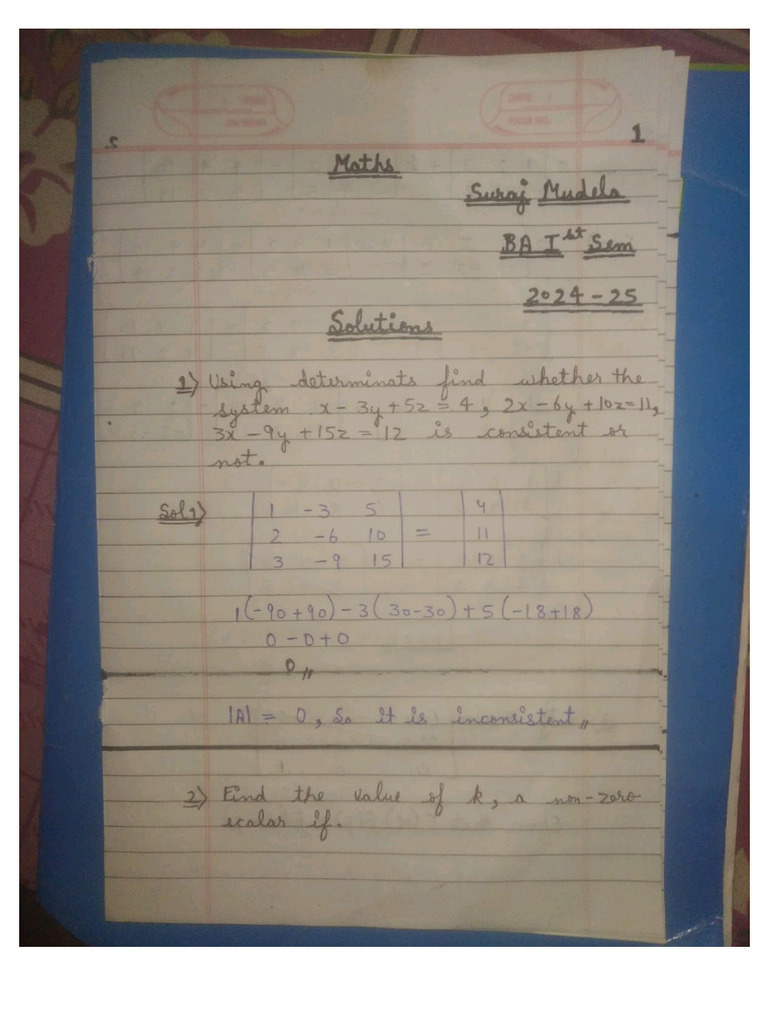 1
Maths
Suraj Mudela
BA Ist Sem
2024-25
Solutions
1) Using determinats find whether the
system x - 3y + 5z = 4, 2x - 6y + 10z = 11,
3x - 9y + 15z = 12 is consistent or
not.
Sol 1) | 1 -3 5 | = | 4 |
| 2 -6 10 | | 11 |
| 3 -9 15 | | 12 |
1(-90+90) - 3(30-30) + 5(-18+18)
0 - 0 + 0
0,,
|A| = 0, So it is inconsistent,,
2) Find the value of k, a non-zero
scalar if.